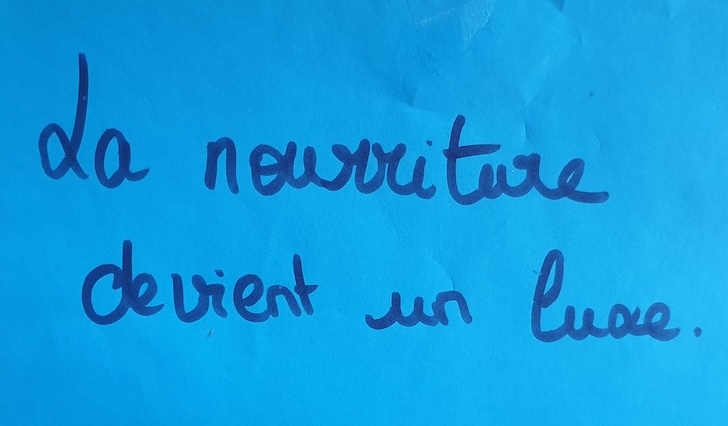 La nourriture
devient un luxe.